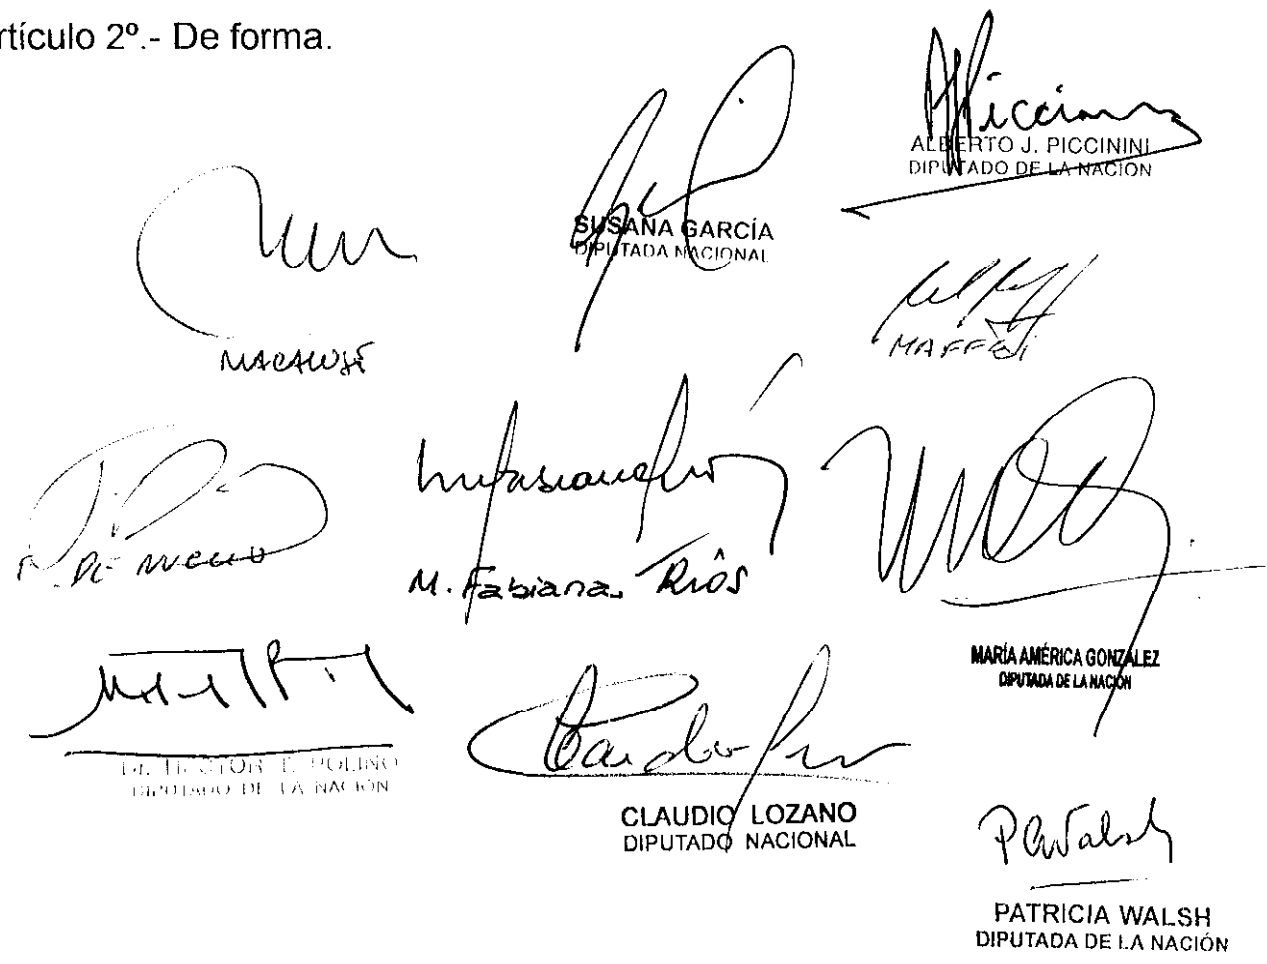 rtículo 2º.- De forma.
ALBERTO J. PICCININI
DIPUTADO DE LA NACION
SUSANA GARCÍA
DIPUTADA NACIONAL
MAFFEI
M. Fabiana Ríos
MARÍA AMÉRICA GONZÁLEZ
DIPUTADA DE LA NACIÓN
Dr. HECTOR T. POLINO
DIPUTADO DE LA NACION
CLAUDIO LOZANO
DIPUTADO NACIONAL
PWalsh
PATRICIA WALSH
DIPUTADA DE LA NACIÓN